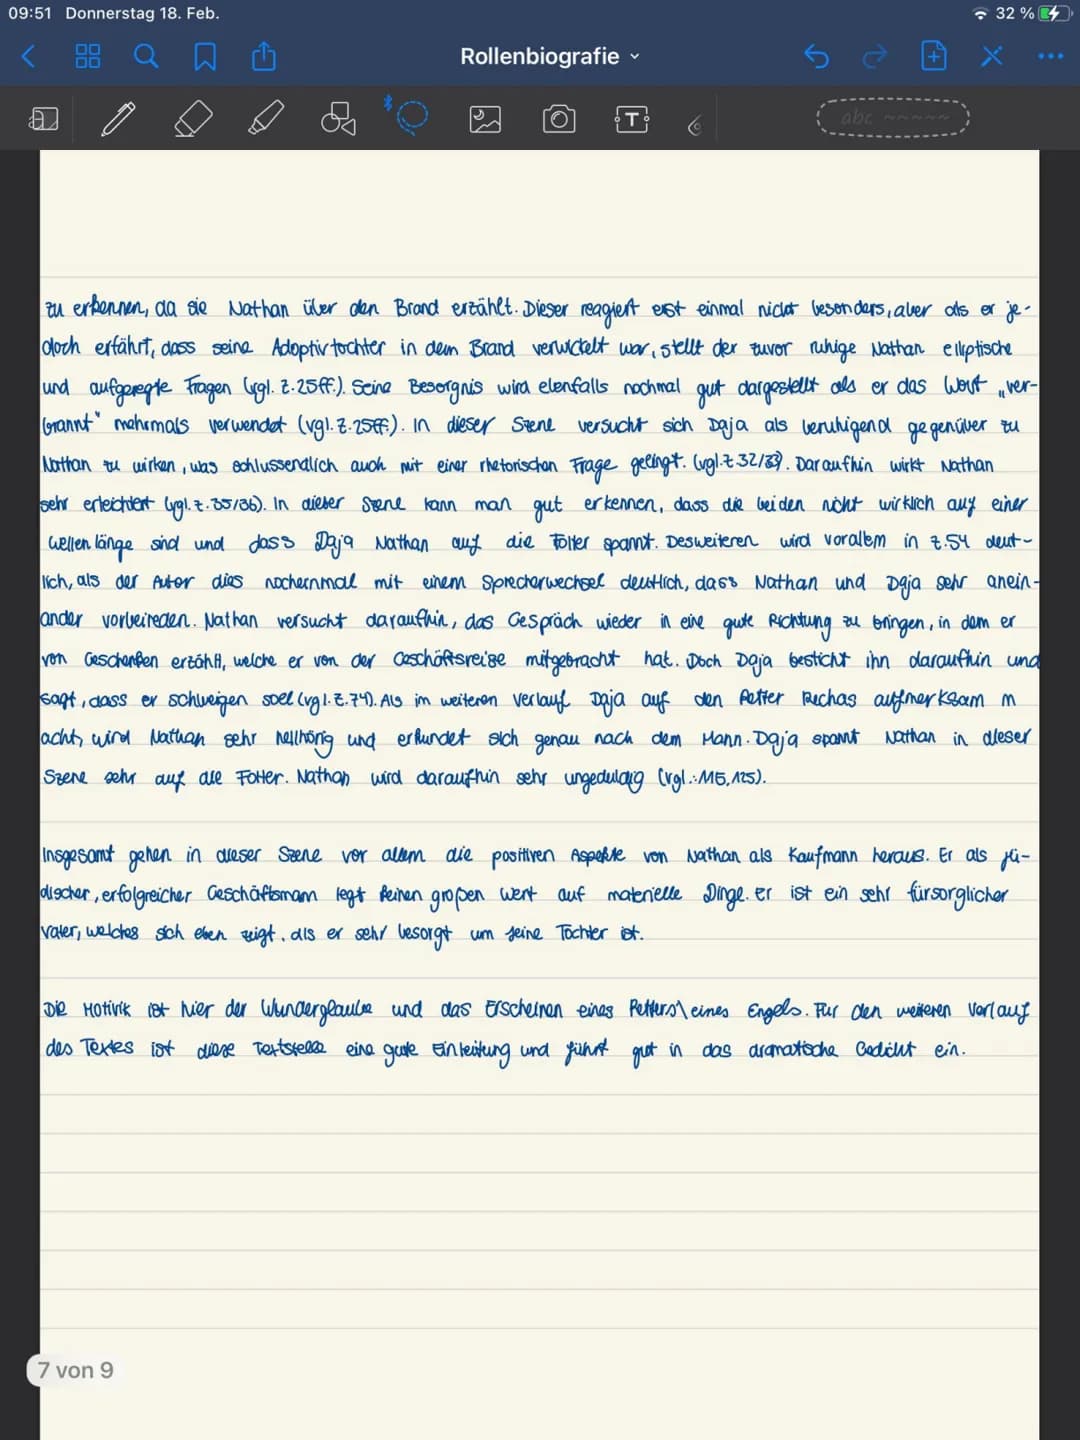 09:51 Donnerstag 18. Feb.
32 %
Rollenbiografie
abc
zu erkennen, da sie Nathan über den Brand erzählt. Dieser reagiert erst einmal nicht besonders, aber als er je-
doch erfährt, dass seine Adoptivtochter in dem Brand verwickelt war, stellt der zuvor ruhige Nathan elliptische
und aufgeregte Fragen (vgl. Z.25ff.). Seine Besorgnis wird ebenfalls nochmal gut dargestellt als er das Wort „ver-
brannt" mehrmals verwendet (vgl. Z.25ff.). In dieser Szene versucht sich Daja als beruhigend gegenüber zu
Nathan zu wirken, was schlussendlich auch mit einer rhetorischen Frage gelingt. (vgl. Z 32/33). Daraufhin wirkt Nathan
sehr erleichtert (vgl. Z. 35/36). In dieser Szene kann man gut erkennen, dass die beiden nicht wirklich auf einer
Wellenlänge sind und dass Daja Nathan auf die Folter spannt. Desweiteren wird vorallem in Z.54 deut-
lich, als der Autor dies nocheinmal mit einem Sprecherwechsel deutlich, dass Nathan und Daja sehr anein-
ander vorbeireden. Nathan versucht daraufhin, das Gespräch wieder in eine gute Richtung zu bringen, in dem er
von Geschenken erzählt, welche er von der Geschäftsreise mitgebracht hat. Doch Daja besticht ihn daraufhin und
sagt, dass er schweigen soll (vgl. Z.74). Als im weiteren Verlauf Daja auf den Retter Rechas aufmerksam m
acht, wird Nathan sehr hellhörig und erkundet sich genau nach dem Mann. Daja spannt Nathan in dieser
Szene sehr auf die Folter. Nathan wird daraufhin sehr ungeduldig (vgl.: 115, 125).
Insgesamt gehen in dieser Szene vor allem die positiven Aspekte von Nathan als Kaufmann heraus. Er als jü-
discher, erfolgreicher Geschäftsmann legt keinen großen Wert auf materielle Dinge. Er ist ein sehr fürsorglicher
Vater, welches sich eben zeigt, als er sehr besorgt um seine Tochter ist.
Die Motivik ist hier der Wunderglaube und das Erscheinen eines Retters\eines Engels. Für den weiteren Verlauf
des Textes ist diese Textstelle eine gute Einleitung und führt gut in das dramatische Gedicht ein.
7 von 9